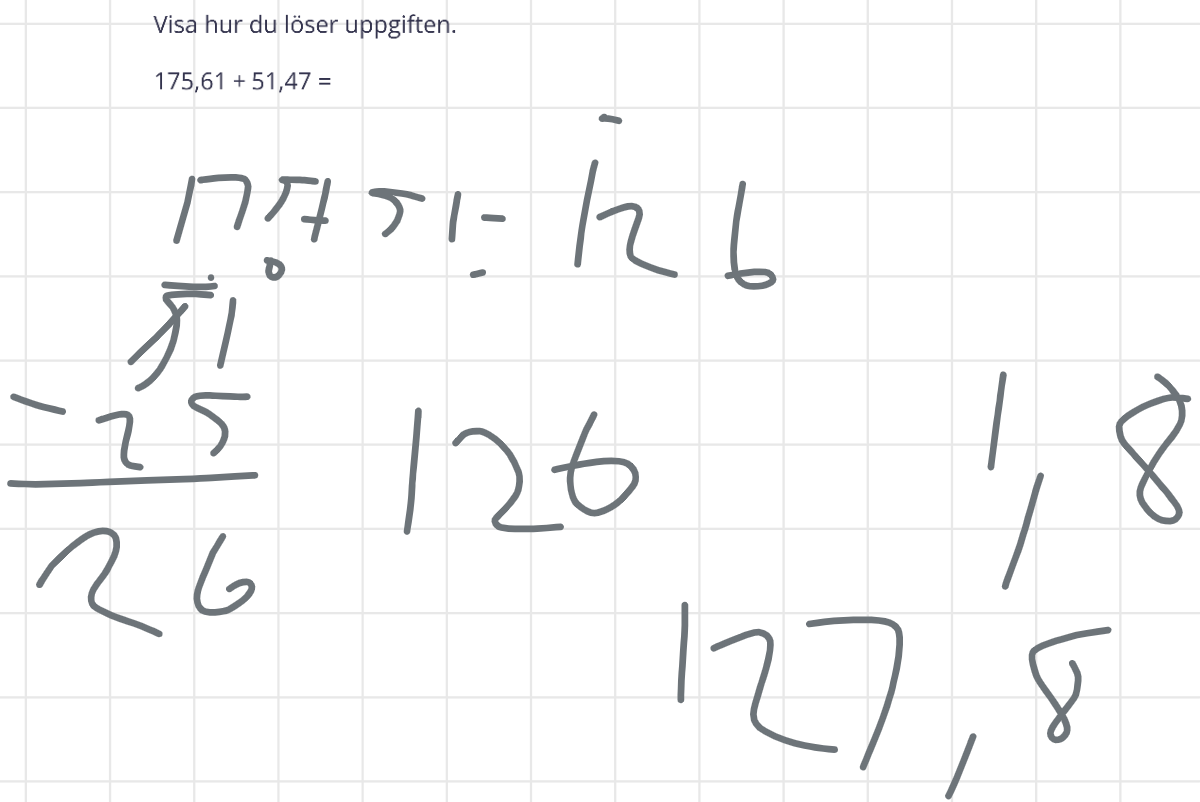 Visa hur du löser uppgiften.
175,61 + 51,47 =
175+51= 126
51
- 25
26
126
1,8
127,8